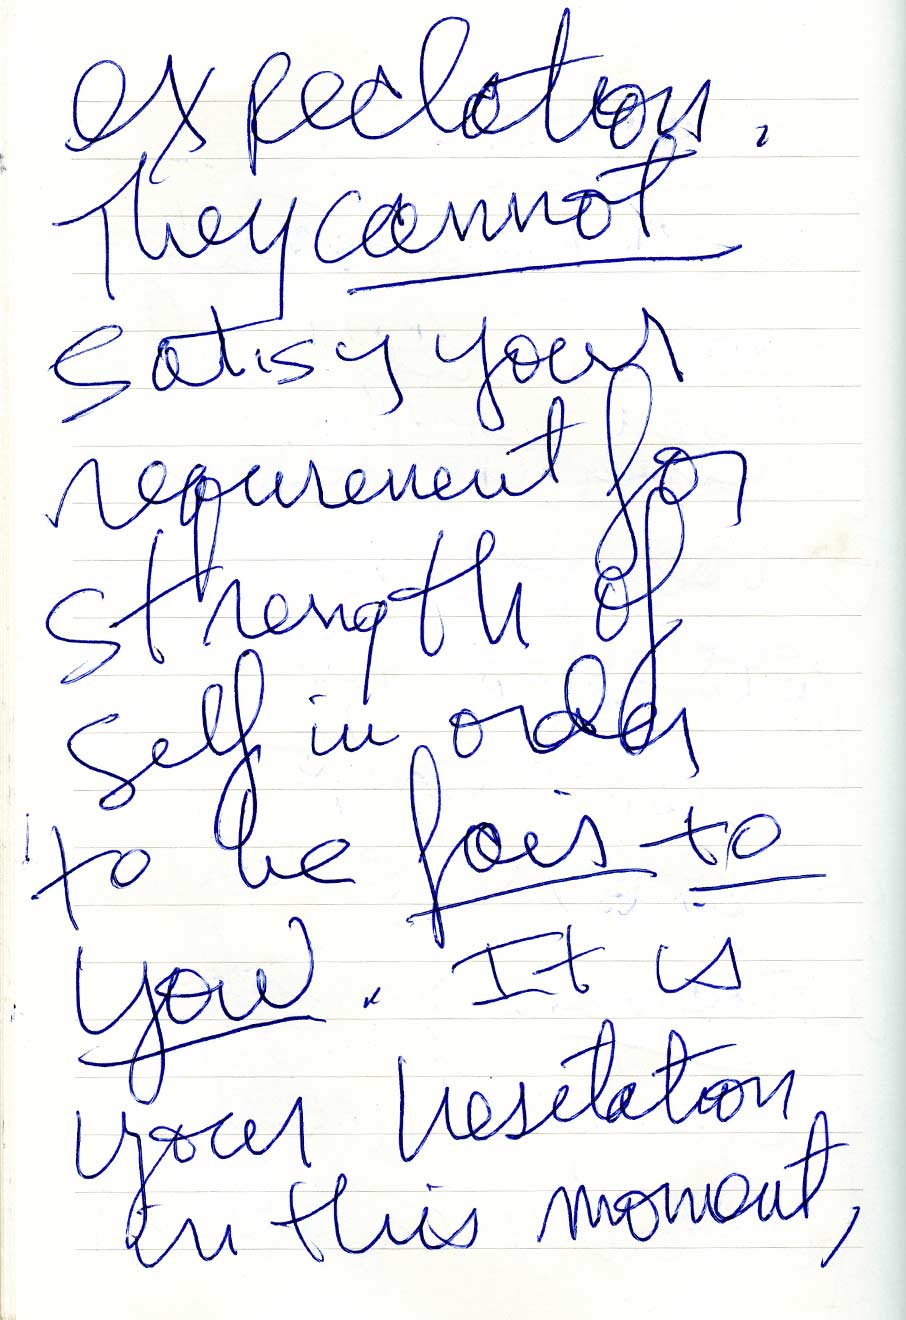 expectation.
They cannot
satisfy your
requirement for
strength of
self in order
to be fair to
you. It is
your hesitation
in this moment,